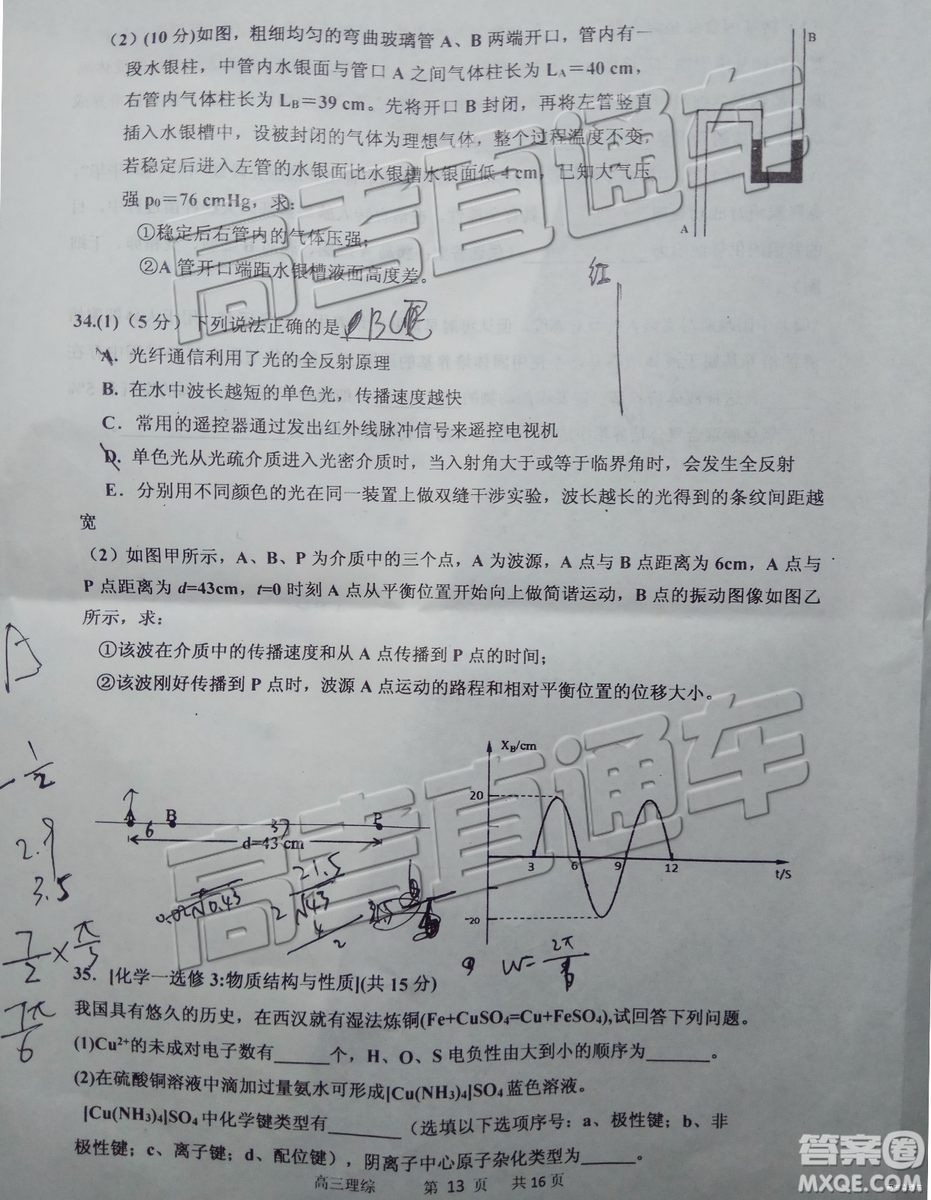 （2）(10 分)如图，粗细均匀的弯曲玻璃管 A、B 两端开口，管内有一
段水银柱，中管内水银面与管口 A 之间气体柱长为 LA=40 cm，
右管内气体柱长为 LB=39 cm。先将开口 B 封闭，再将左管竖直
插入水银槽中，设被封闭的气体为理想气体，整个过程温度不变，
若稳定后进入左管的水银面比水银槽水银面低 4 cm，已知大气压
强 p0=76 cmHg，求：
①稳定后右管内的气体压强；
②A 管开口端距水银槽液面高度差。
B
A
红
34.(1)（5 分）下列说法正确的是
A. 光纤通信利用了光的全反射原理
B. 在水中波长越短的单色光，传播速度越快
C. 常用的遥控器通过发出红外线脉冲信号来遥控电视机
D. 单色光从光疏介质进入光密介质时，当入射角大于或等于临界角时，会发生全反射
E. 分别用不同颜色的光在同一装置上做双缝干涉实验，波长越长的光得到的条纹间距越
宽
（2）如图甲所示，A、B、P 为介质中的三个点，A 为波源，A 点与 B 点距离为 6cm，A 点与
P 点距离为 d=43cm，t=0 时刻 A 点从平衡位置开始向上做简谐运动，B 点的振动图像如图乙
所示，求：
①该波在介质中的传播速度和从 A 点传播到 P 点的时间；
②该波刚好传播到 P 点时，波源 A 点运动的路程和相对平衡位置的位移大小。
A B P
6 37
d=43 cm
XB/cm
20
3 6 9 12
t/S
-20
2.9
3.5
21.5
35. [化学一选修 3:物质结构与性质](共 15 分)
我国具有悠久的历史，在西汉就有湿法炼铜(Fe+CuSO4=Cu+FeSO4),试回答下列问题。
(1)Cu²⁺的未成对电子数有______个，H、O、S 电负性由大到小的顺序为_______。
(2)在硫酸铜溶液中滴加过量氨水可形成[Cu(NH3)4]SO4 蓝色溶液。
[Cu(NH3)4]SO4 中化学键类型有________（选填以下选项序号：a、极性键；b、非
极性键；c、离子键；d、配位键），阴离子中心原子杂化类型为_____。
高三理综 第 13 页 共 16 页
高考直通车
高考直通车
答案圈
MXQE.COM